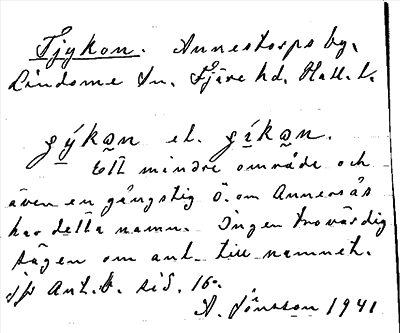 Fjykon. Annestorps by,
Lindome sn. Fjäre hd. Hall. l.
gýkon el. gíkon.
Ett mindre område och
även en gångstig ö. om Annersås
har detta namn. Ingen trovärdig
sägen om anl. till namnet.
Ant. b. sid. 16.
A. Jönsson 1941